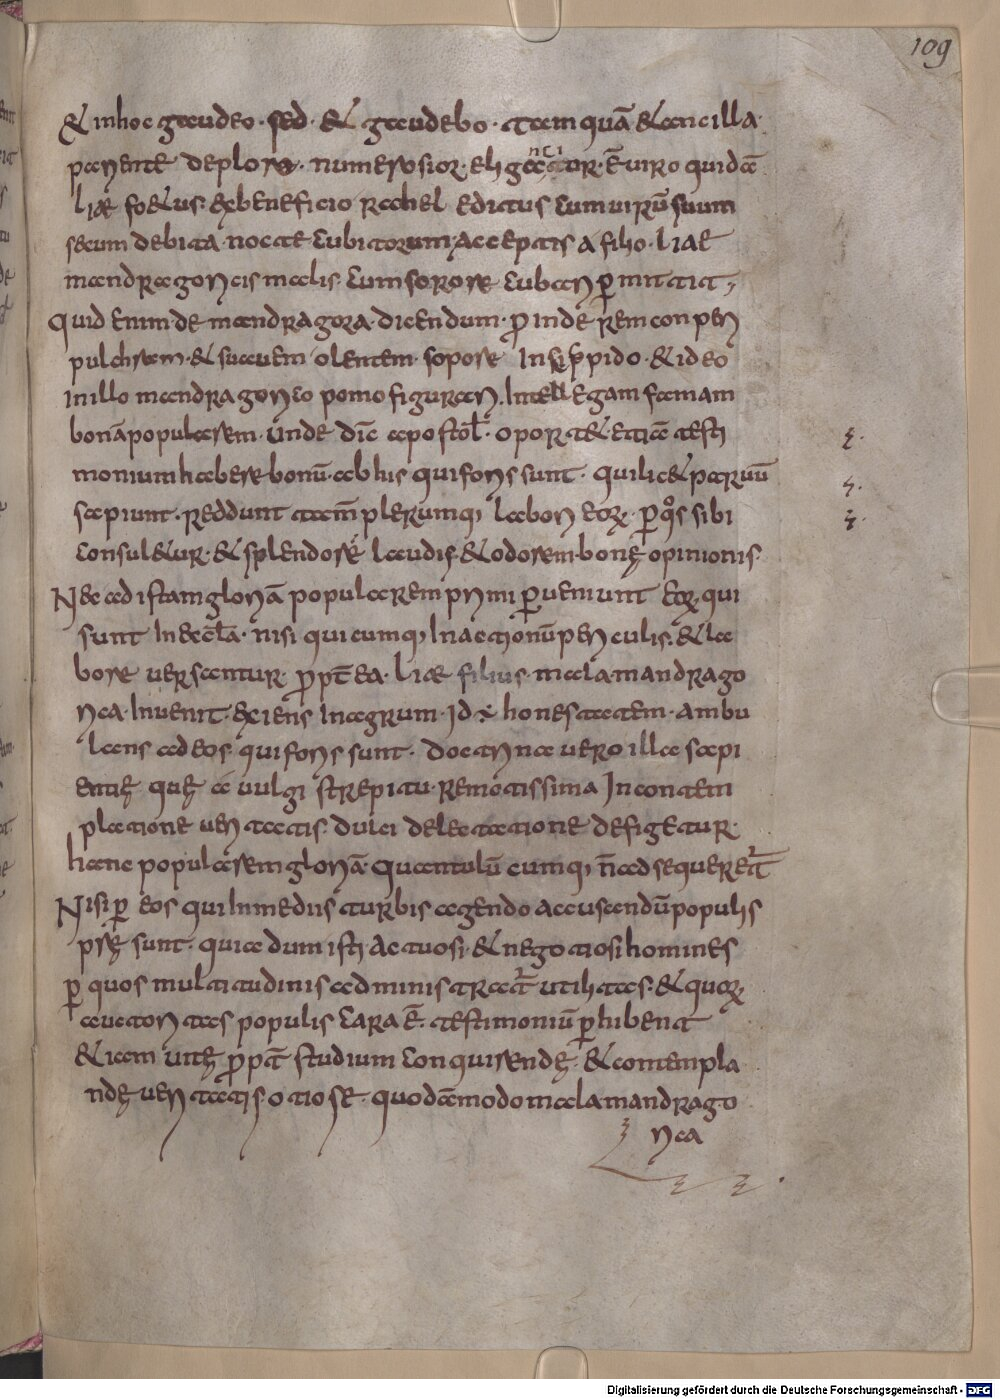 109
& inhoc gaudeo · sed · & gaudebo · tam quā & ancilla ·
pariente deplora · numerosior · eligancitur · Ē uiro quidā
liae foetus · ex beneficio rachel editus cum uirū suum
secum debita nocte cubitorum · acceptis a filio · liae
mandragoricis malis · cum sorore cubari p̄mittit ;
Quid enim de mandragora · dicendum · proinde rem conperi
pulchram · & suauem olentem · sopore insippido · & ideo
in illo mandragorico pomo figurari · intellegam famam
bonā popularem · unde dic̄ apostol̄ · oportet etiā testi
monium habere bonū · ab his qui foris sunt · qui lic& paruū
sapiunt · reddunt tam̄ plerumq; labori eoꝝ · p̄ quos sibi
consulitur · & splendore laudis · & odorem · bonę opinionis ·
Nec ad istam gloriā popularem primi p̄ueniunt eoꝝ, qui
sunt in eccl̄a · nisi quicumq; in actionū periculis · & la
bore uersantur · propt̄ ea · liae filius · mala mandrago
rica · inuenit · exiens in agrum · id ÷ honestatem · ambu
lans ad eos · qui foris sunt · doctrina uero illa sapi
entię quę a uulgi strepitu · remotissima in contem
platione ueritatis · dulci delectatione defigetur ·
hanc popularem gloriā · quantulū cumq; n̄ adsequeret̄
Nisi p̄ eos qui in mediis turbis agendo ac suadendū populis
prę sunt · quia dum isti actuosi · & negotiosi homines
p̄ quos multitudinis administrat̄ utilitas · & quoꝝ
auctoritas populis cara ē · testimoniū p̄hibent
& iam uitę propt̄ studium conquirendę · & contempla
ndę ueritatis otiose · quodāmodo mala mandrago
rica
Digitalisierung gefördert durch die Deutsche Forschungsgemeinschaft - DFG